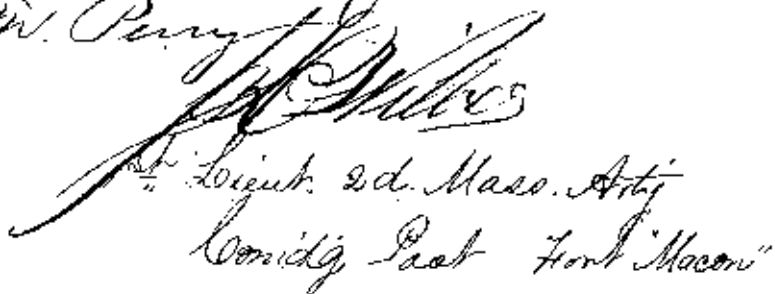 W. Perry
1st Lieut. 2d. Mass. Arty
Comdg Post Fort "Macon"